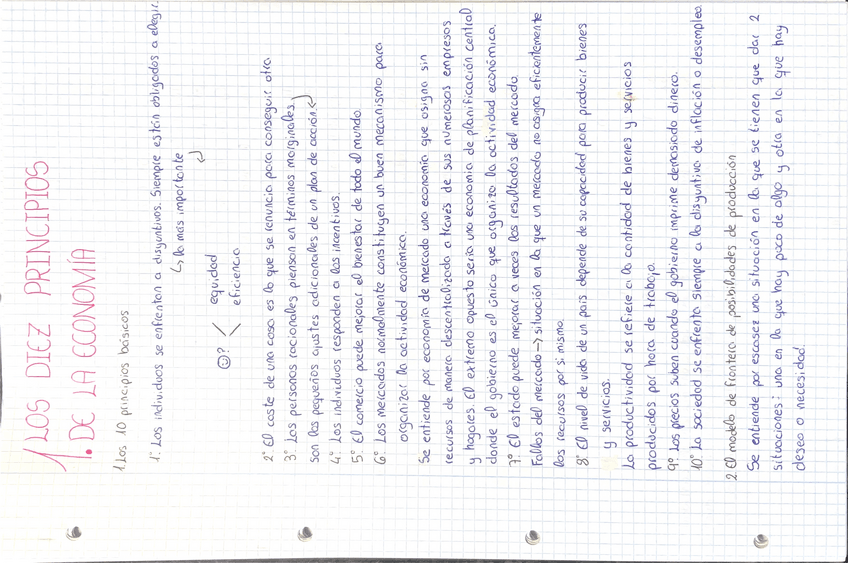 1. LOS DIEZ PRINCIPIOS
DE LA ECONOMÍA
1. Los 10 principios básicos
1º Los individuos se enfrentan a disyuntivas. Siempre están obligados a elegir.
↳ la más importante
equidad
☺? <
eficiencia
2º El coste de una cosa es lo que se renuncia para conseguir otra
3º Las personas racionales piensan en términos marginales.
son los pequeños ajustes adicionales de un plan de acción.
4º Los individuos responden a los incentivos.
5º El comercio puede mejorar el bienestar de todo el mundo.
6º Los mercados normalmente constituyen un buen mecanismo para
organizar la actividad económica.
Se entiende por economía de mercado una economía que asigna sin
recursos de manera descentralizada a través de sus numerosos empresos
y hogares. El extremo opuesto sería una economía de planificación central
donde el gobierno es el único que organiza la actividad económica.
7º El estado puede mejorar a veces los resultados del mercado.
Fallos del mercado → situación en la que un mercado no asigna eficientemente
los recursos por si mismo.
8º El nivel de vida de un país depende de su capacidad para producir bienes
y servicios.
La productividad se refiere a la cantidad de bienes y servicios
producidos por hora de trabajo.
9º Los precios suben cuando el gobierno imprime demasiado dinero.
10º La sociedad se enfrenta siempre a la disyuntiva de inflación o desempleo.
2. El modelo de frontera de posibilidades de producción
Se entiende por escasez una situación en la que se tienen que dar 2
situaciones: una en la que hay poco de algo y otra en la que hay
deseo o necesidad.